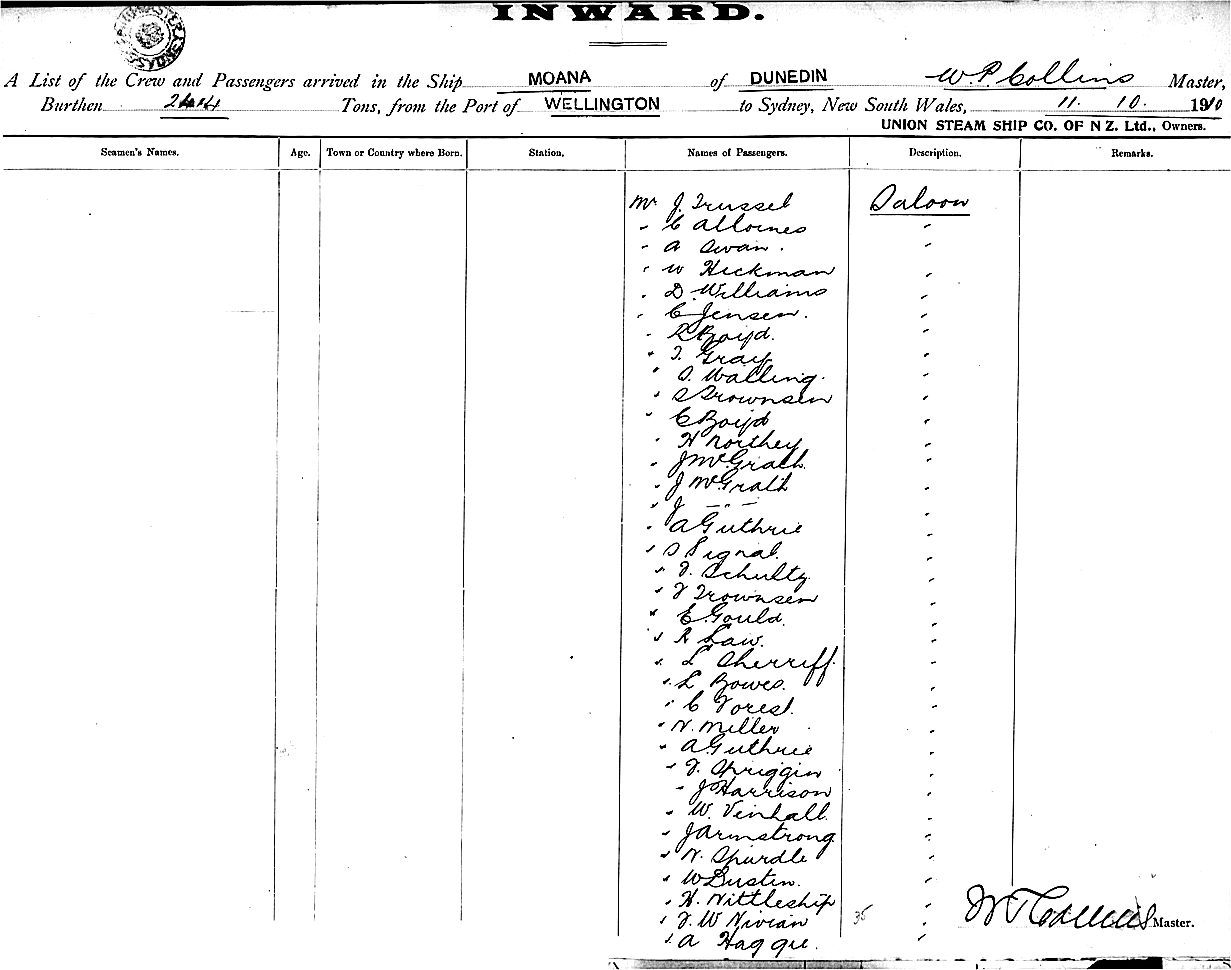 INWARD.
A List of the Crew and Passengers arrived in the Ship MOANA of DUNEDIN W. P. Collins Master,
Burthen 2414 Tons, from the Port of WELLINGTON to Sydney, New South Wales, 11. 10. 1910
UNION STEAM SHIP CO. OF N Z. Ltd., Owners.
Seamen's Names. Age. Town or Country where Born. Station. Names of Passengers. Description. Remarks.
Mr J. Trussel Saloon
" C "
" A Swan. "
" W Hickman "
" D Williams "
" C Jensen. "
" R Boyd. "
" T. Gray "
" S. Walling. "
" S Trownsen "
" C Boyd "
" H Northey "
" J McGrath. "
" J McGrath "
" J — " — "
" A Guthrie "
" S Signal. "
" F. Schultz "
" F Trownsen "
" E. Gould. "
" R Law. "
" L Sherriff. "
" L Bowes. "
" C Forest. "
" N. Miller "
" A Guthrie "
" F. Spriggin "
" J Harrison "
" W. Vinhall. "
" J Armstrong "
" N. Spurdle "
" W Dustin. "
" H. Nittleship "
" F. W Nivian 35 "
" A Haggie. "
Master.